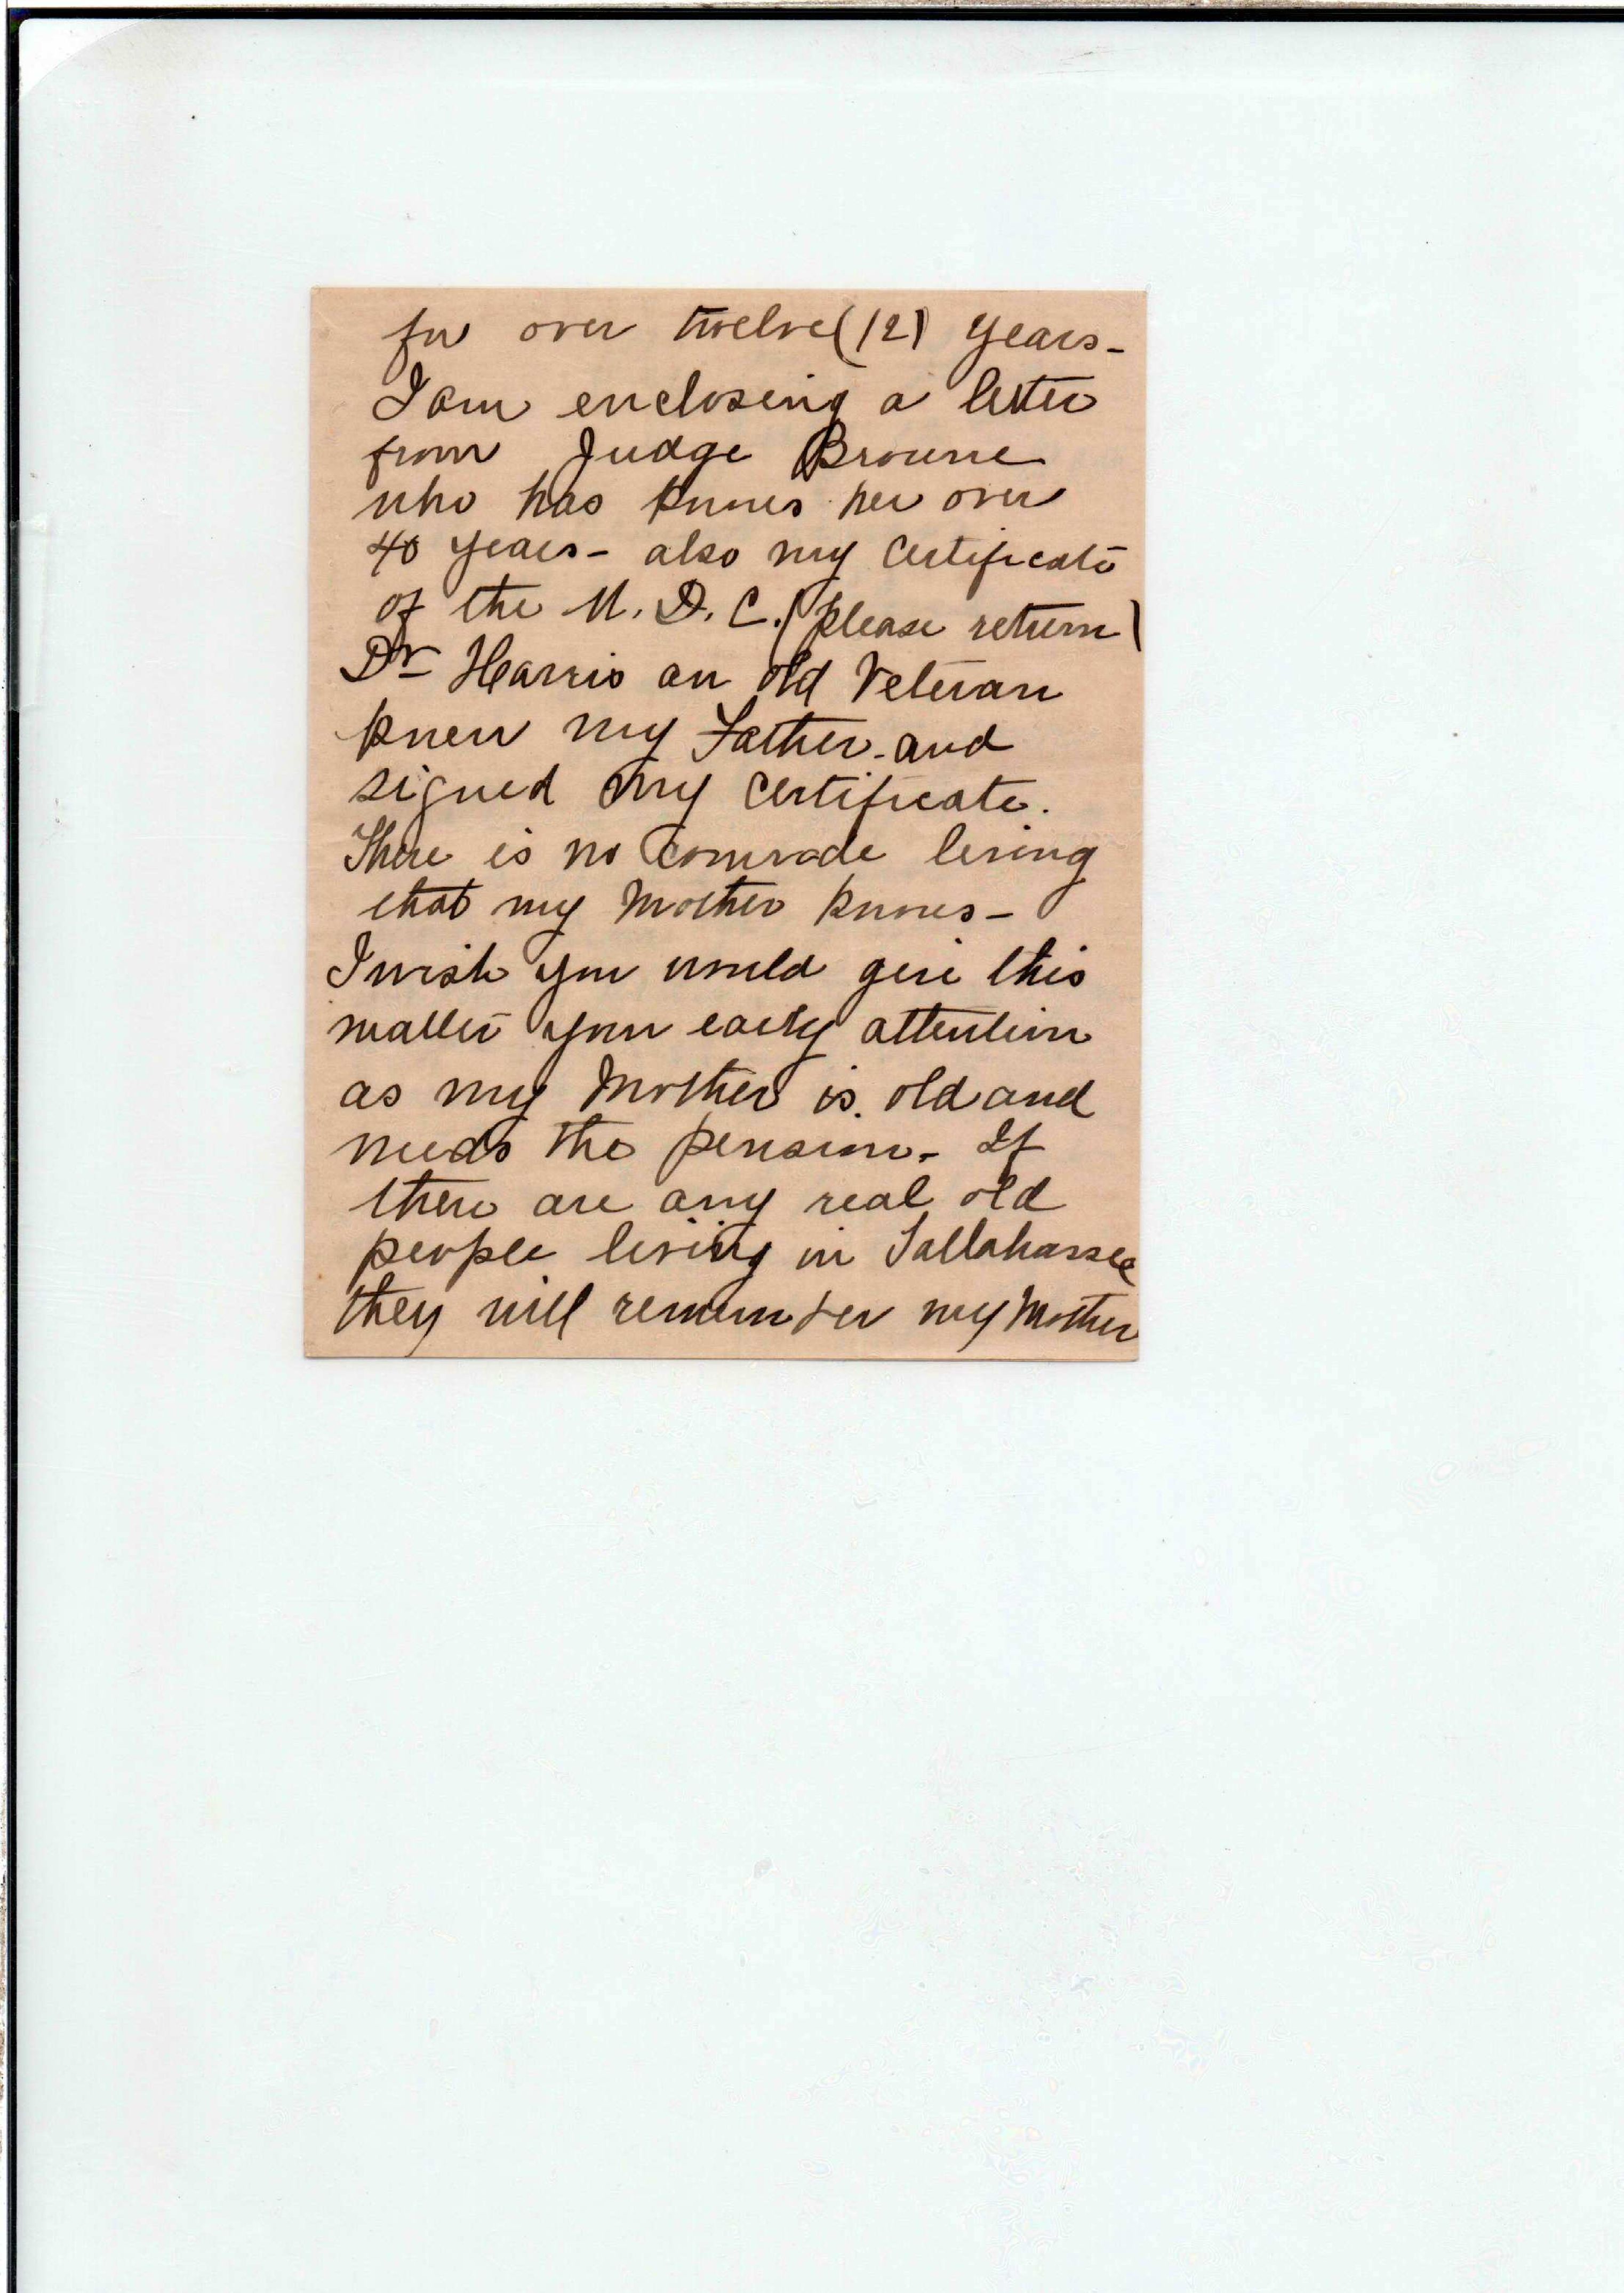 for over twelve (12) years -
I am enclosing a letter
from Judge Browne
who has known her over
40 years - also my Certificate
of the U. D. C. (please return)
Dr Harris an old Veteran
knew my Father - and
signed my Certificate.
There is no Comrade living
that my Mother knows -
I wish you would give this
matter your early attention
as my Mother is old and
needs the pension - If
there are any real old
people living in Tallahassee
they will remember my Mother